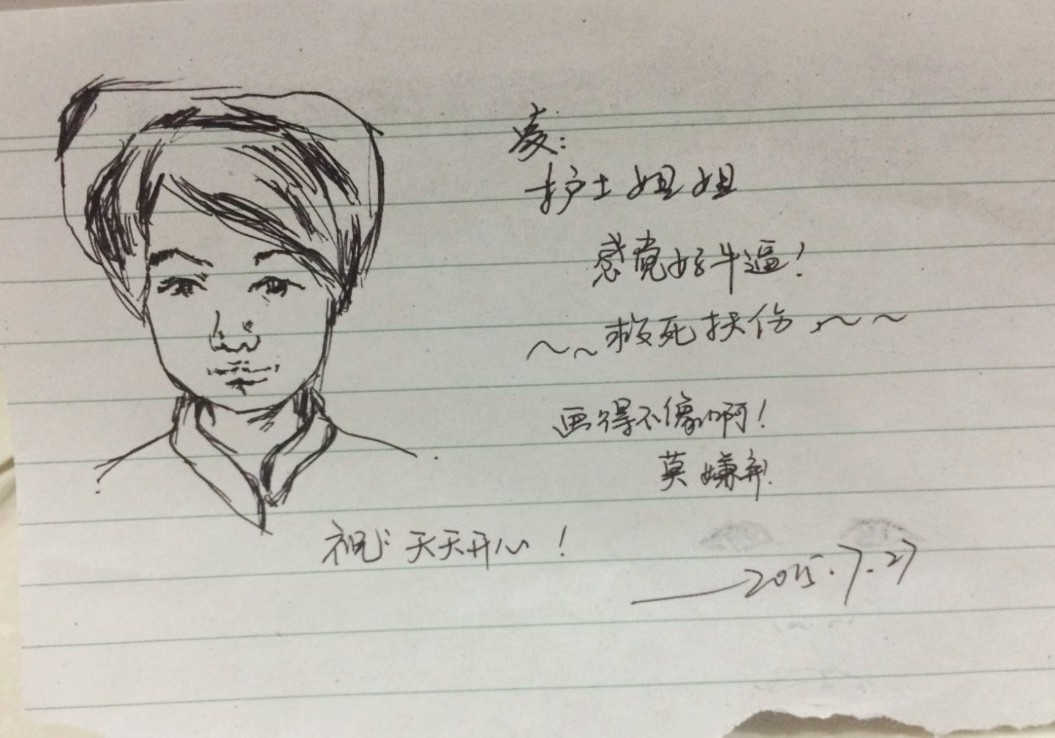 凌:
护士姐姐
感觉好牛逼!
~~救死扶伤~~~
画得不像啊!
莫嫌弃!
祝:天天开心!
——2015.7.27